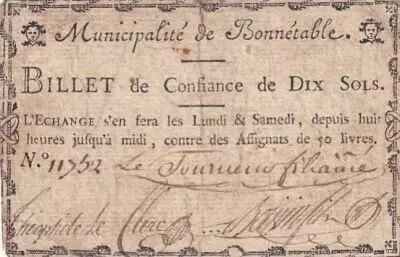 Municipalité de Bonnétable.
BILLET de Confiance de DIX SOLS.
L'ECHANGE s'en fera les Lundi & Samedi, depuis huit
heures jusqu'à midi, contre des Assignats de 50 livres.
N.º 11752 Le Tourneur fils aîné
Leclerc